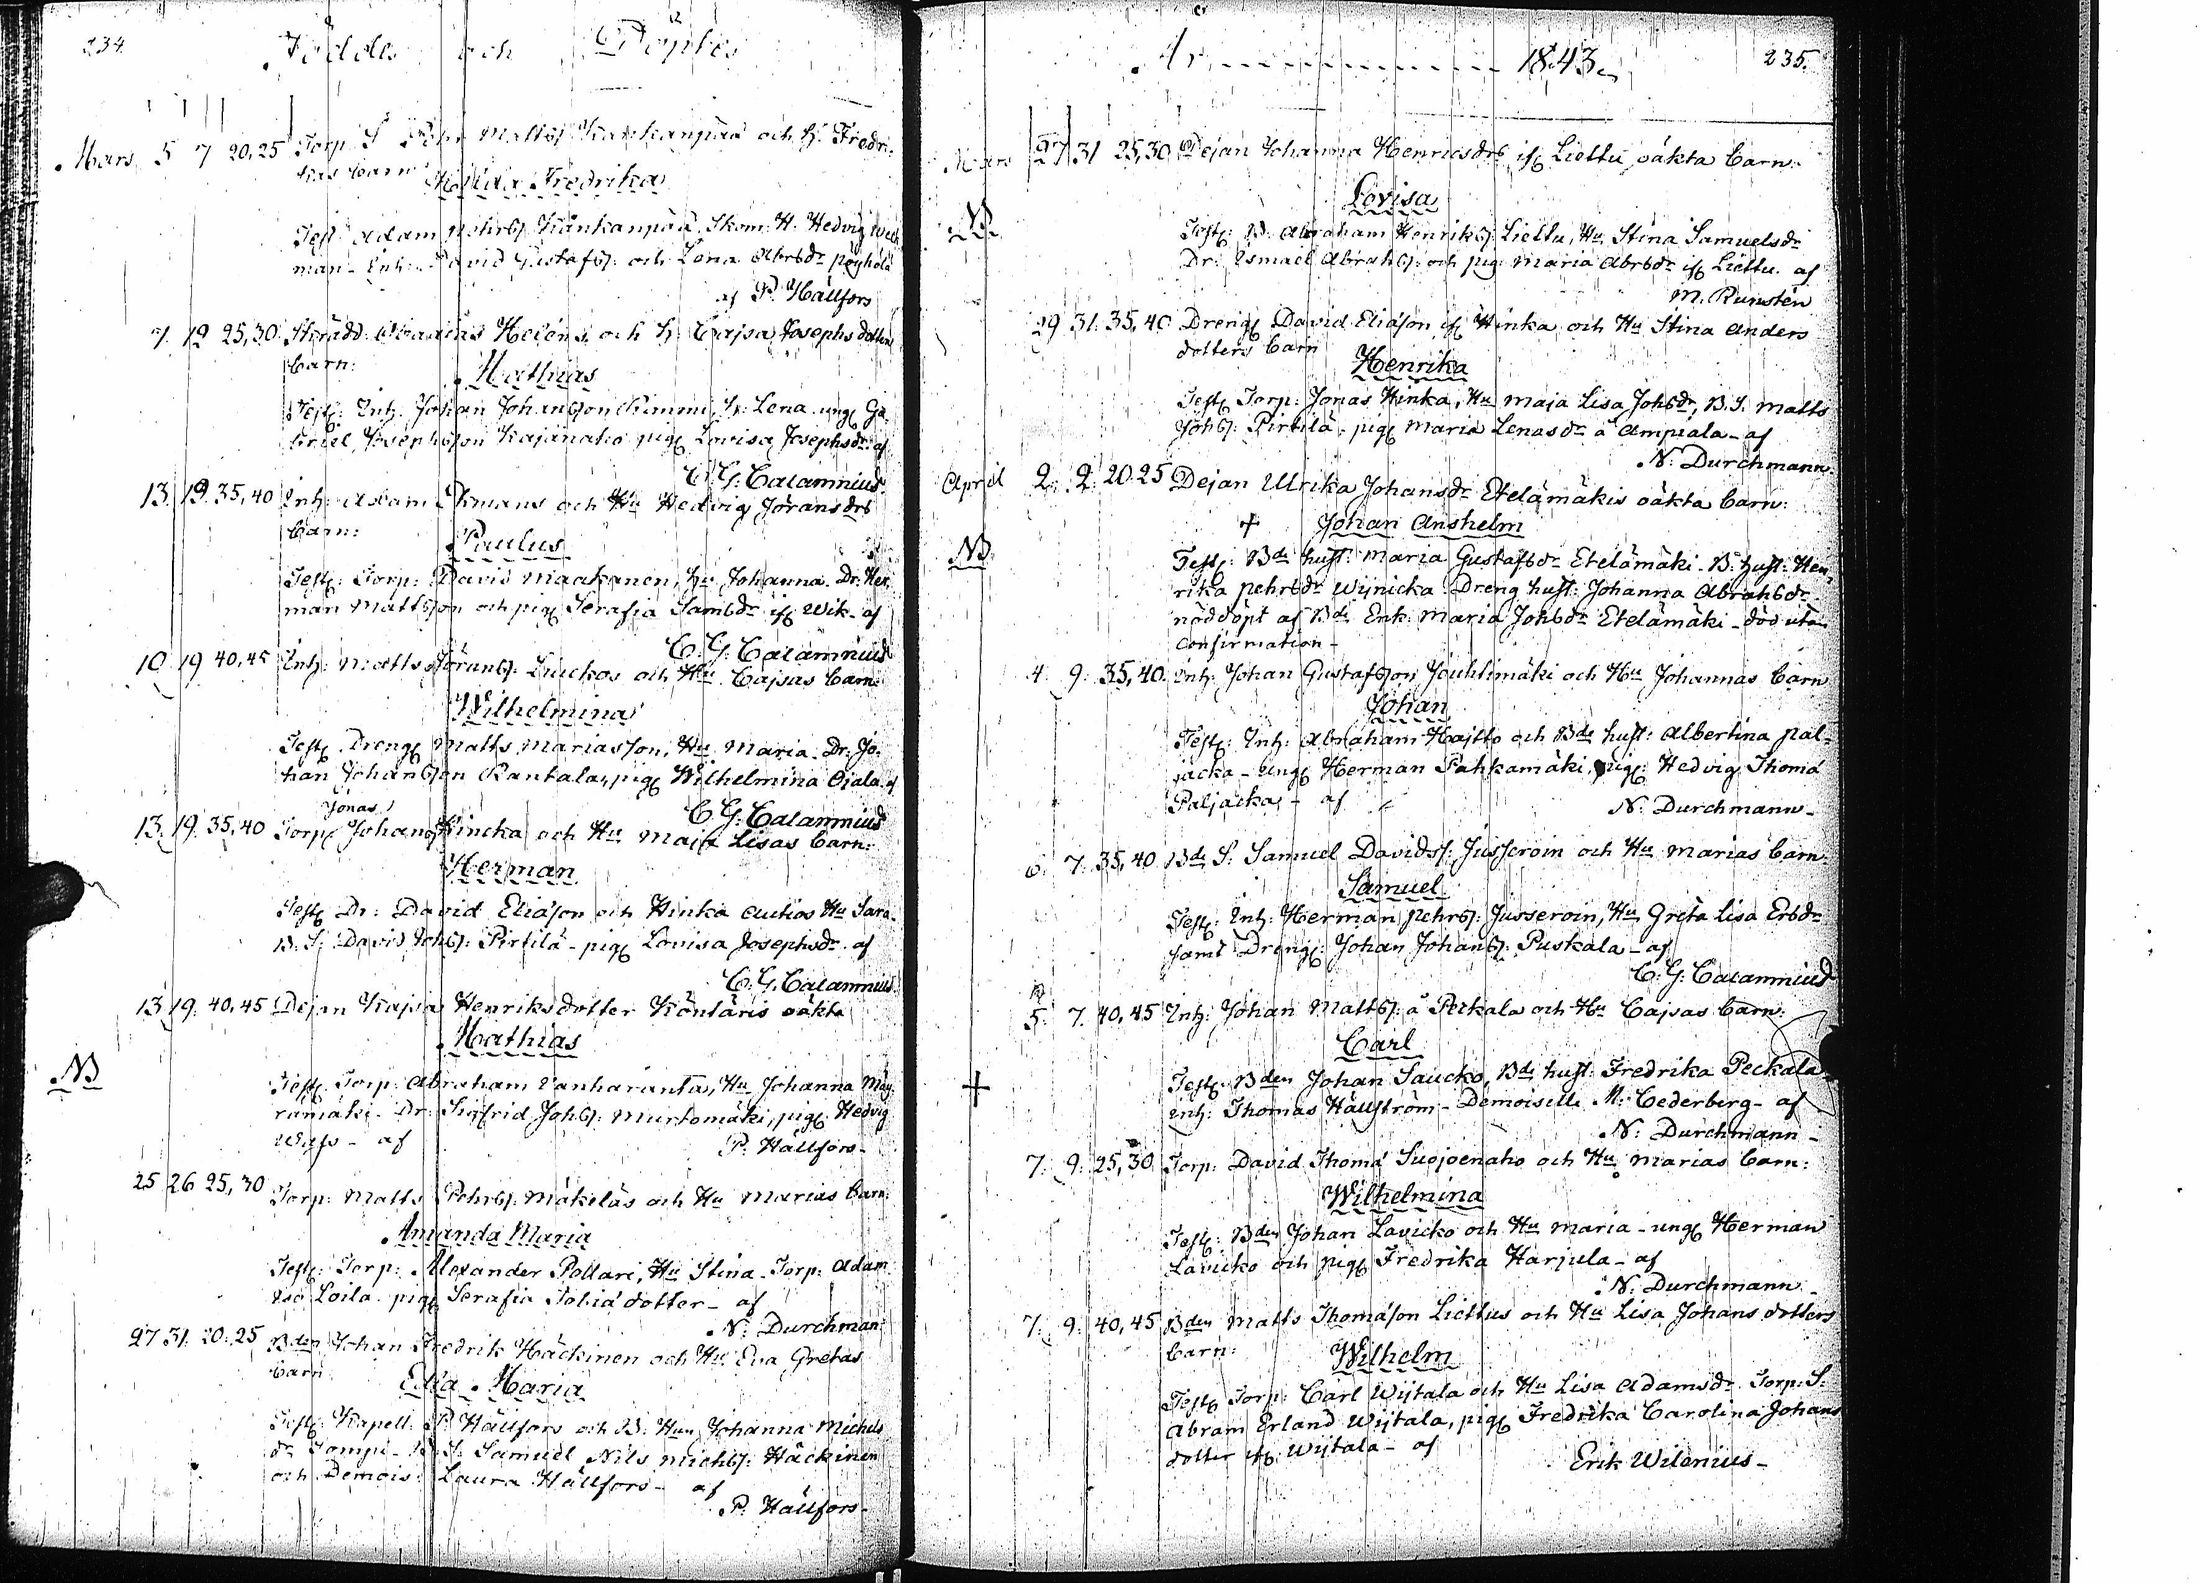 234. Föddes och Döptes
Mars 5 7 20,25 Torp S Pehr Mattss Kankanpää och H. Fredri-
kas barn
Hilda Fredrika
Test: Adam Pehrss Kankanpää, Skom. H. Hedvig Weck
man - Inh: David Gustafss: och Lena Abrsdr Pöyhölä
af P. Hällfors
7 12 25,30 Skrädd: Helens och H: Cajsa Josephs dotters
barn:
Mathias
Test: Inh: Johan Johansson Rimmi, H: Lena ung Ga
briel Josephsson Kajanaho pig Lovisa Josephsdr af
C. G. Calamnius
13 19 35,40 Inh: Adam Ekmans och Hu Hedvig Jöransdrs
barn:
Paulus
Test: Torp: David Maakanen, Hu Johanna - Dr: Her
man Mattsson och pig Serafia Samsdr if Wik - af
C. G. Calamnius
10 19 40,45 Inh: Matts Jöranss: Luckos och Hu Cajsas barn:
Wilhelmina
Test: Dreng Matts Mariasson, Hu Maria - Dr: Jo-
han Johansson Rantala, pig Wilhelmina Ojala af
C. G. Calamnius
Jonas
13 19 35,40 Torp: Johans Hincka och Hu Maja Lisas barn:
Herman
Test: Dr: David Eliason och Hinka Autios Hu Sara
B. S: David Johss: Pirtilä - pig Lovisa Josephsdr af
C. G. Calamnius
13 19 40,45 Dejan Kajsa Henriksdotter Köntäris oäkta
Mathias
NB
Test: Torp: Abraham Vanharanta, Hu Johanna Mäy
rämäki - Dr: Sigfrid Johss: Murtomäki, pig Hedvig
Wass - af P. Hällfors -
25 26 25,30 Torp: Matts Pehrss: Mäkeläs och Hu Marias barn:
Amanda Maria
Test: Torp: Alexander Pollari, Hu Stina - Torp: Adam
Iso Loila pig Serafia Tobiä dotter - af
N: Durchman:
27 31 20,25 Bden Johan Fredrik Häckinen och Hu Eva Gretas
barn
Edla Maria
Test: Kapell: P. Hällfors och B: Hun Johanna Michels
dr Tompi - B: S: Samuel Nils Michss: Häckinen
och Demois: Laura Hällfors - af
P. Hällfors -
År 1843. 235.
Mars 27 31 25,30 Dejan Johanna Henricsdrs if Liettu oäkta barn:
Lovisa
NB
Test: B: Abraham Henrikss: Liettu, Hu Stina Samuelsdr
Dr: Ismael Abrahss: och pig: Maria Abrsdr if Liettu af
M. Rumstén
29 31 35,40 Dreng David Eliason if Hinka och Hu Stina Anders
dotters barn
Henrika
Test: Torp: Jonas Hinka, Hu Maja Lisa Johsdr, B. S. Matts
Johss: Pirtilä, pig Maria Lenasdr å Ampiala - af
N: Durchmann:
April 2 2 20 25 Dejan Ulrika Johansdr Etelämäkis oäkta barn:
+ Johan Anshelm
NB
Test: Bde hust: Maria Gustafsdr Etelämäki - B: hust: Hen
rika Pehrsdr Wijnicka Dreng hust: Johanna Abrahsdr
nöddöpt af Bde Enk: Maria Johsdr Etelämäki - död utan
confirmation -
4 9 35,40 Inh: Johan Gustafsson Jouhtimäki och Hu Johannas barn
Johan
Test: Inh: Abraham Hajtto och Bde hust: Albertina Pal-
jacka - ung Herman Pahkamäki, pig: Hedvig Thoma
Paljacka - af N: Durchmann -
6 7 35,40 Bde S: Samuel Davidss: Jusseroin och Hu Marias barn
Samuel
Test: Inh: Herman Pehrss: Jusseroin, Hu Greta Lisa Ersdr
samt Dreng: Johan Johanss: Puskala - af
C. G. Calamnius
5 7 40,45 Inh: Johan Mattss: å Peckala och Hu Cajsas barn:
Carl
+
Test: Bden Johan Saucko, Bde hust: Fredrika Peckala
Inh: Thomas Hällström - Demoiselle M: Cederberg - af
N: Durchmann -
7 9 25,30 Torp: David Thomä Suojoenaho och Hu Marias barn:
Wilhelmina
Test: Bden Johan Lavicko och Hu Maria - ung Herman
Lavicko och pig Fredrika Harjula - af
N: Durchmann -
7 9 40,45 Bden Matts Thomason Liettus och Hu Lisa Johans dotters
barn:
Wilhelm
Test: Torp: Carl Wijtala och Hu Lisa Adamsdr Torp: S:
Abram Erland Wijtala, pig Fredrika Carolina Johans
dotter if Wijtala - af
Erik Wilenius -